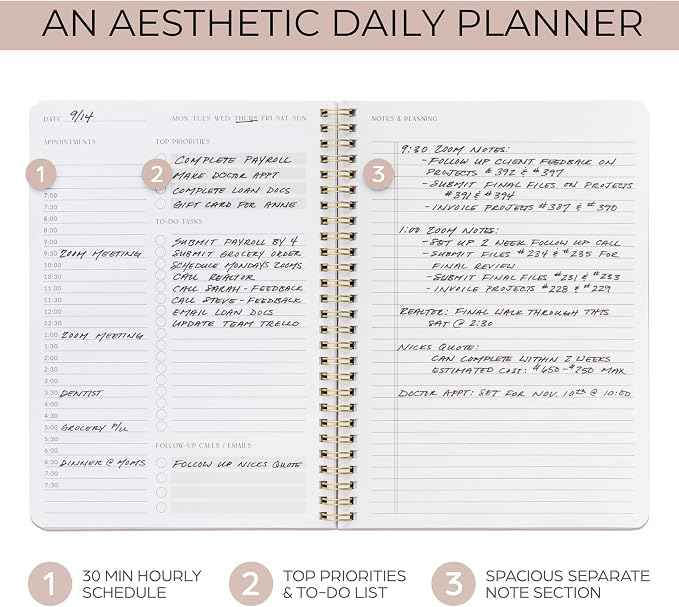 AN AESTHETIC DAILY PLANNER
DATE 9/14
MON TUES WED THURS FRI SAT SUN
APPOINTMENTS
1
7:00
7:30
8:00
8:30
9:00
9:30 ZOOM MEETING
10:00
10:30
11:00
11:30
12:00
12:30
1:00 ZOOM MEETING
1:30
2:00
2:30
3:00
3:30 DENTIST
4:00
4:30
5:00 GROCERY P/U
5:30
6:00
6:30 DINNER @ MOMS
7:00
7:30
TOP PRIORITIES
2
COMPLETE PAYROLL
MAKE DOCTOR APPT
COMPLETE LOAN DOCS
GIFT CARD FOR ANNE
TO-DO TASKS
SUBMIT PAYROLL BY 4
SUBMIT GROCERY ORDER
SCHEDULE MONDAYS ZOOMS
CALL REALTOR
CALL SARAH - FEEDBACK
CALL STEVE - FEEDBACK
EMAIL LOAN DOCS
UPDATE TEAM TRELLO
FOLLOW-UP CALLS / EMAILS
FOLLOW UP NICKS QUOTE
NOTES & PLANNING
3
9:30 ZOOM NOTES:
- FOLLOW UP CLIENT FEEDBACK ON
PROJECTS #392 & #397
- SUBMIT FINAL FILES ON PROJECTS
#391 & #394
- INVOICE PROJECTS #387 & #390
1:00 ZOOM NOTES:
- SET UP 2 WEEK FOLLOW UP CALL
- SUBMIT FILES #234 & #235 FOR
FINAL REVIEW
- SUBMIT FINAL FILES #231 & #233
- INVOICE PROJECTS #228 & #229
REALTER: FINAL WALK THROUGH THIS
SAT @ 2:30
NICKS QUOTE:
CAN COMPLETE WITHIN 2 WEEKS
ESTIMATED COST: $650-$750 MAX
DOCTOR APPT: SET FOR NOV. 10TH @ 10:00
1 30 MIN HOURLY
SCHEDULE
2 TOP PRIORITIES
& TO-DO LIST
3 SPACIOUS SEPARATE
NOTE SECTION